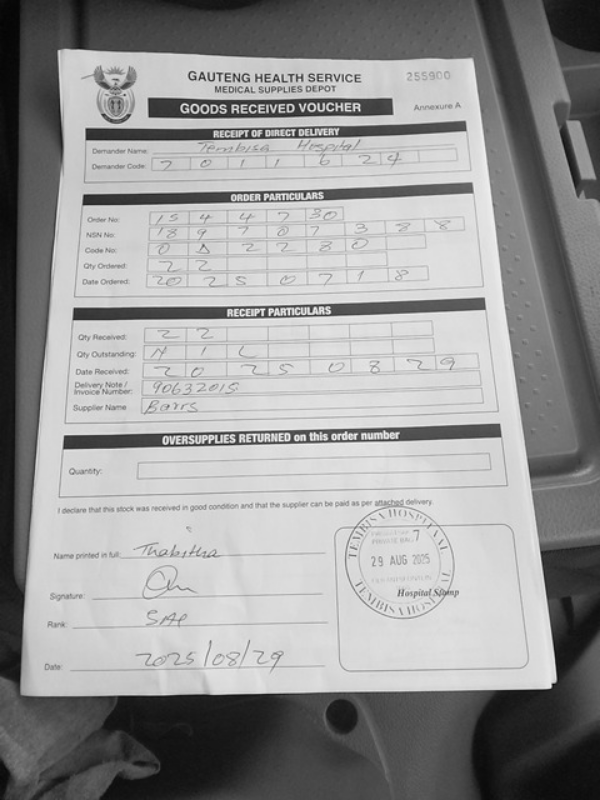 GAUTENG HEALTH SERVICE
255900
MEDICAL SUPPLIES DEPOT
GOODS RECEIVED VOUCHER
Annexure A
RECEIPT OF DIRECT DELIVERY
Demander Name: Tembisa Hospital
Demander Code: 7 0 1 1 6 2 4
ORDER PARTICULARS
Order No: 15 4 4 7 30
NSN No: 18 9 7 0 7 3 8 8
Code No: 0 2 2 8 0
Qty Ordered: 2 2
Date Ordered: 20 2 5 0 7 1 8
RECEIPT PARTICULARS
Qty Received: 2 2
Qty Outstanding: N I L
Date Received: 2 0 2 5 0 8 2 9
Delivery Note / Invoice Number: 90632015
Supplier Name Barrs
OVERSUPPLIES RETURNED on this order number
Quantity:
I declare that this stock was received in good condition and that the supplier can be paid as per attached delivery.
Name printed in full: Thabitha
Signature:
Rank: SAP
Date: 2025/08/29
TEMBISA HOSPITAL
PRIVATE BAG 7
29 AUG 2025
Hospital Stamp
TEMBISA HOSPITAL